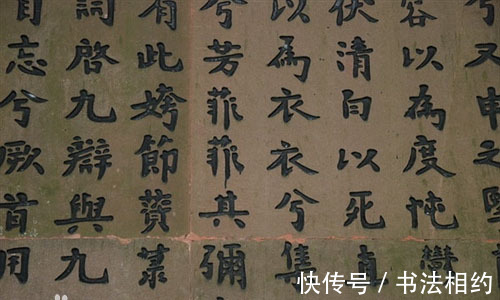 兮又申之
容以為度忳鬱
伏清白以死直
以為衣衣兮集
兮芳菲菲其彌
有此姱節薋菉
詞啓九辯與九
自忘兮厥首用
快传号 / 书法相约